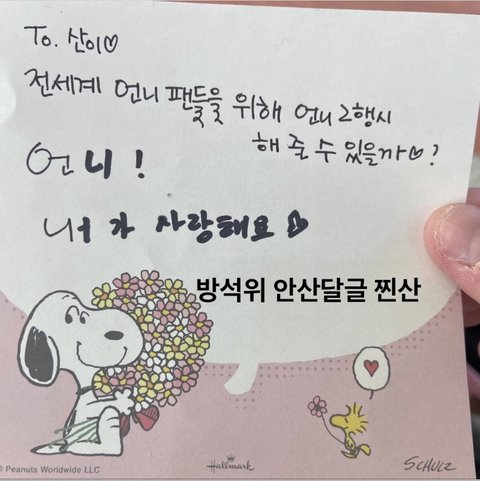 To. 산이♡
전세계 언니 팬들을 위해 언니 2행시
해 줄 수 있을까♡?
언니!
너가 사랑해요♡
방석위 안산달글 찐산
© Peanuts Worldwide LLC
Hallmark
SCHULZ